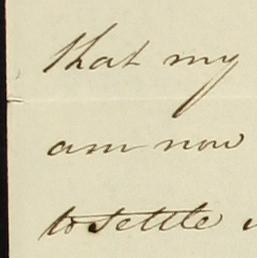 that my
am now
to settle